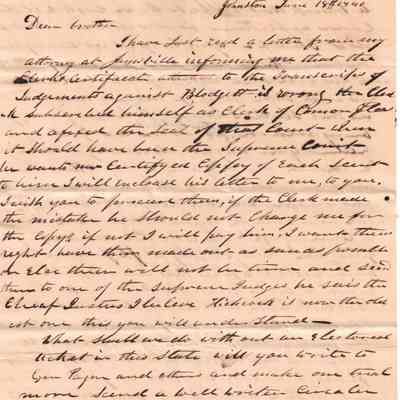 June 18th 1840
Dear brother
I have Just read a letter from my
attorney at informing me that the
Clerks Certificate to the Transcripts of
Judgements against Blodgett is wrong the Clerk
Subscribed himself as Clerk of Common Pleas
and afixed the Seal of that Court when
it Should have been the Supreme Court
he wants Certifyed Copy of Each Sent
to him I will inclose his letter to me, to you.
I wish you to procure them, if the Clerk made
the mistake he Should not Charge me for
the Copys if not I will pay him, I want them
right have them made out as soon as possible
or Else there will not be time and send
them to one of the Supreme Judges he says the
Cheif Justice I beleive Hichcock is now the old
est one this you will understand—
What Shall we do with out an Electoral
ticket in this State will you write to
Payne and others and make one trial
more Send a well writen Circular